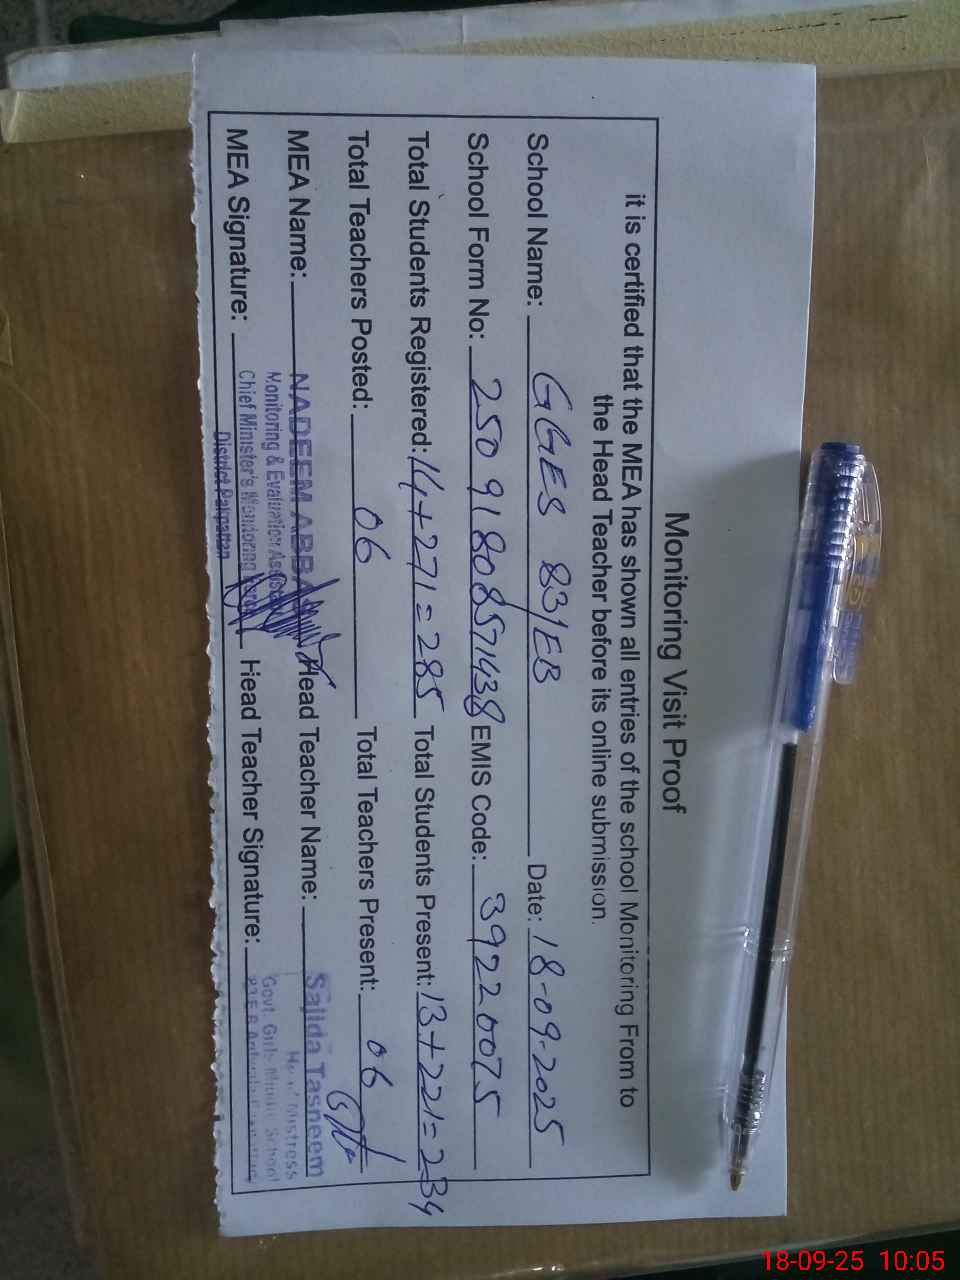 Monitoring Visit Proof
it is certified that the MEA has shown all entries of the school Monitoring From to
the Head Teacher before its online submission.
School Name: GGES 83/EB Date: 18-09-2025
School Form No: 25091808571438 EMIS Code: 39220075
Total Students Registered: 14+271=285 Total Students Present: 13+221=234
Total Teachers Posted: 06 Total Teachers Present: 06
MEA Name: NADEEM ABBAS Head Teacher Name: Sajida Tasneem
Monitoring & Evaluation Head Mistress
MEA Signature: Chief Minister's Monitoring Head Teacher Signature: Govt. Girls School
District Pakpattan 83 E.B
18-09-25 10:05